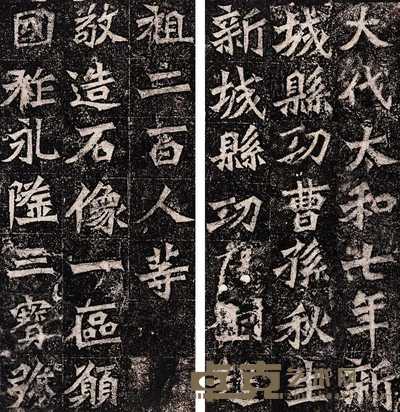 大代太和七年新
城縣功曹孫秋生
新城縣功
祖二百人等
敬造石像一區願
國祚永隆三寶弥
卓克艺术网